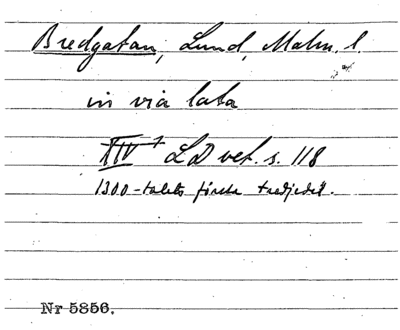 Bredgatan, Lund, Malm. l.
in via lata
XIV 1 LD vet. s. 118
1300-talets första tredjedel.
Nr 5856.